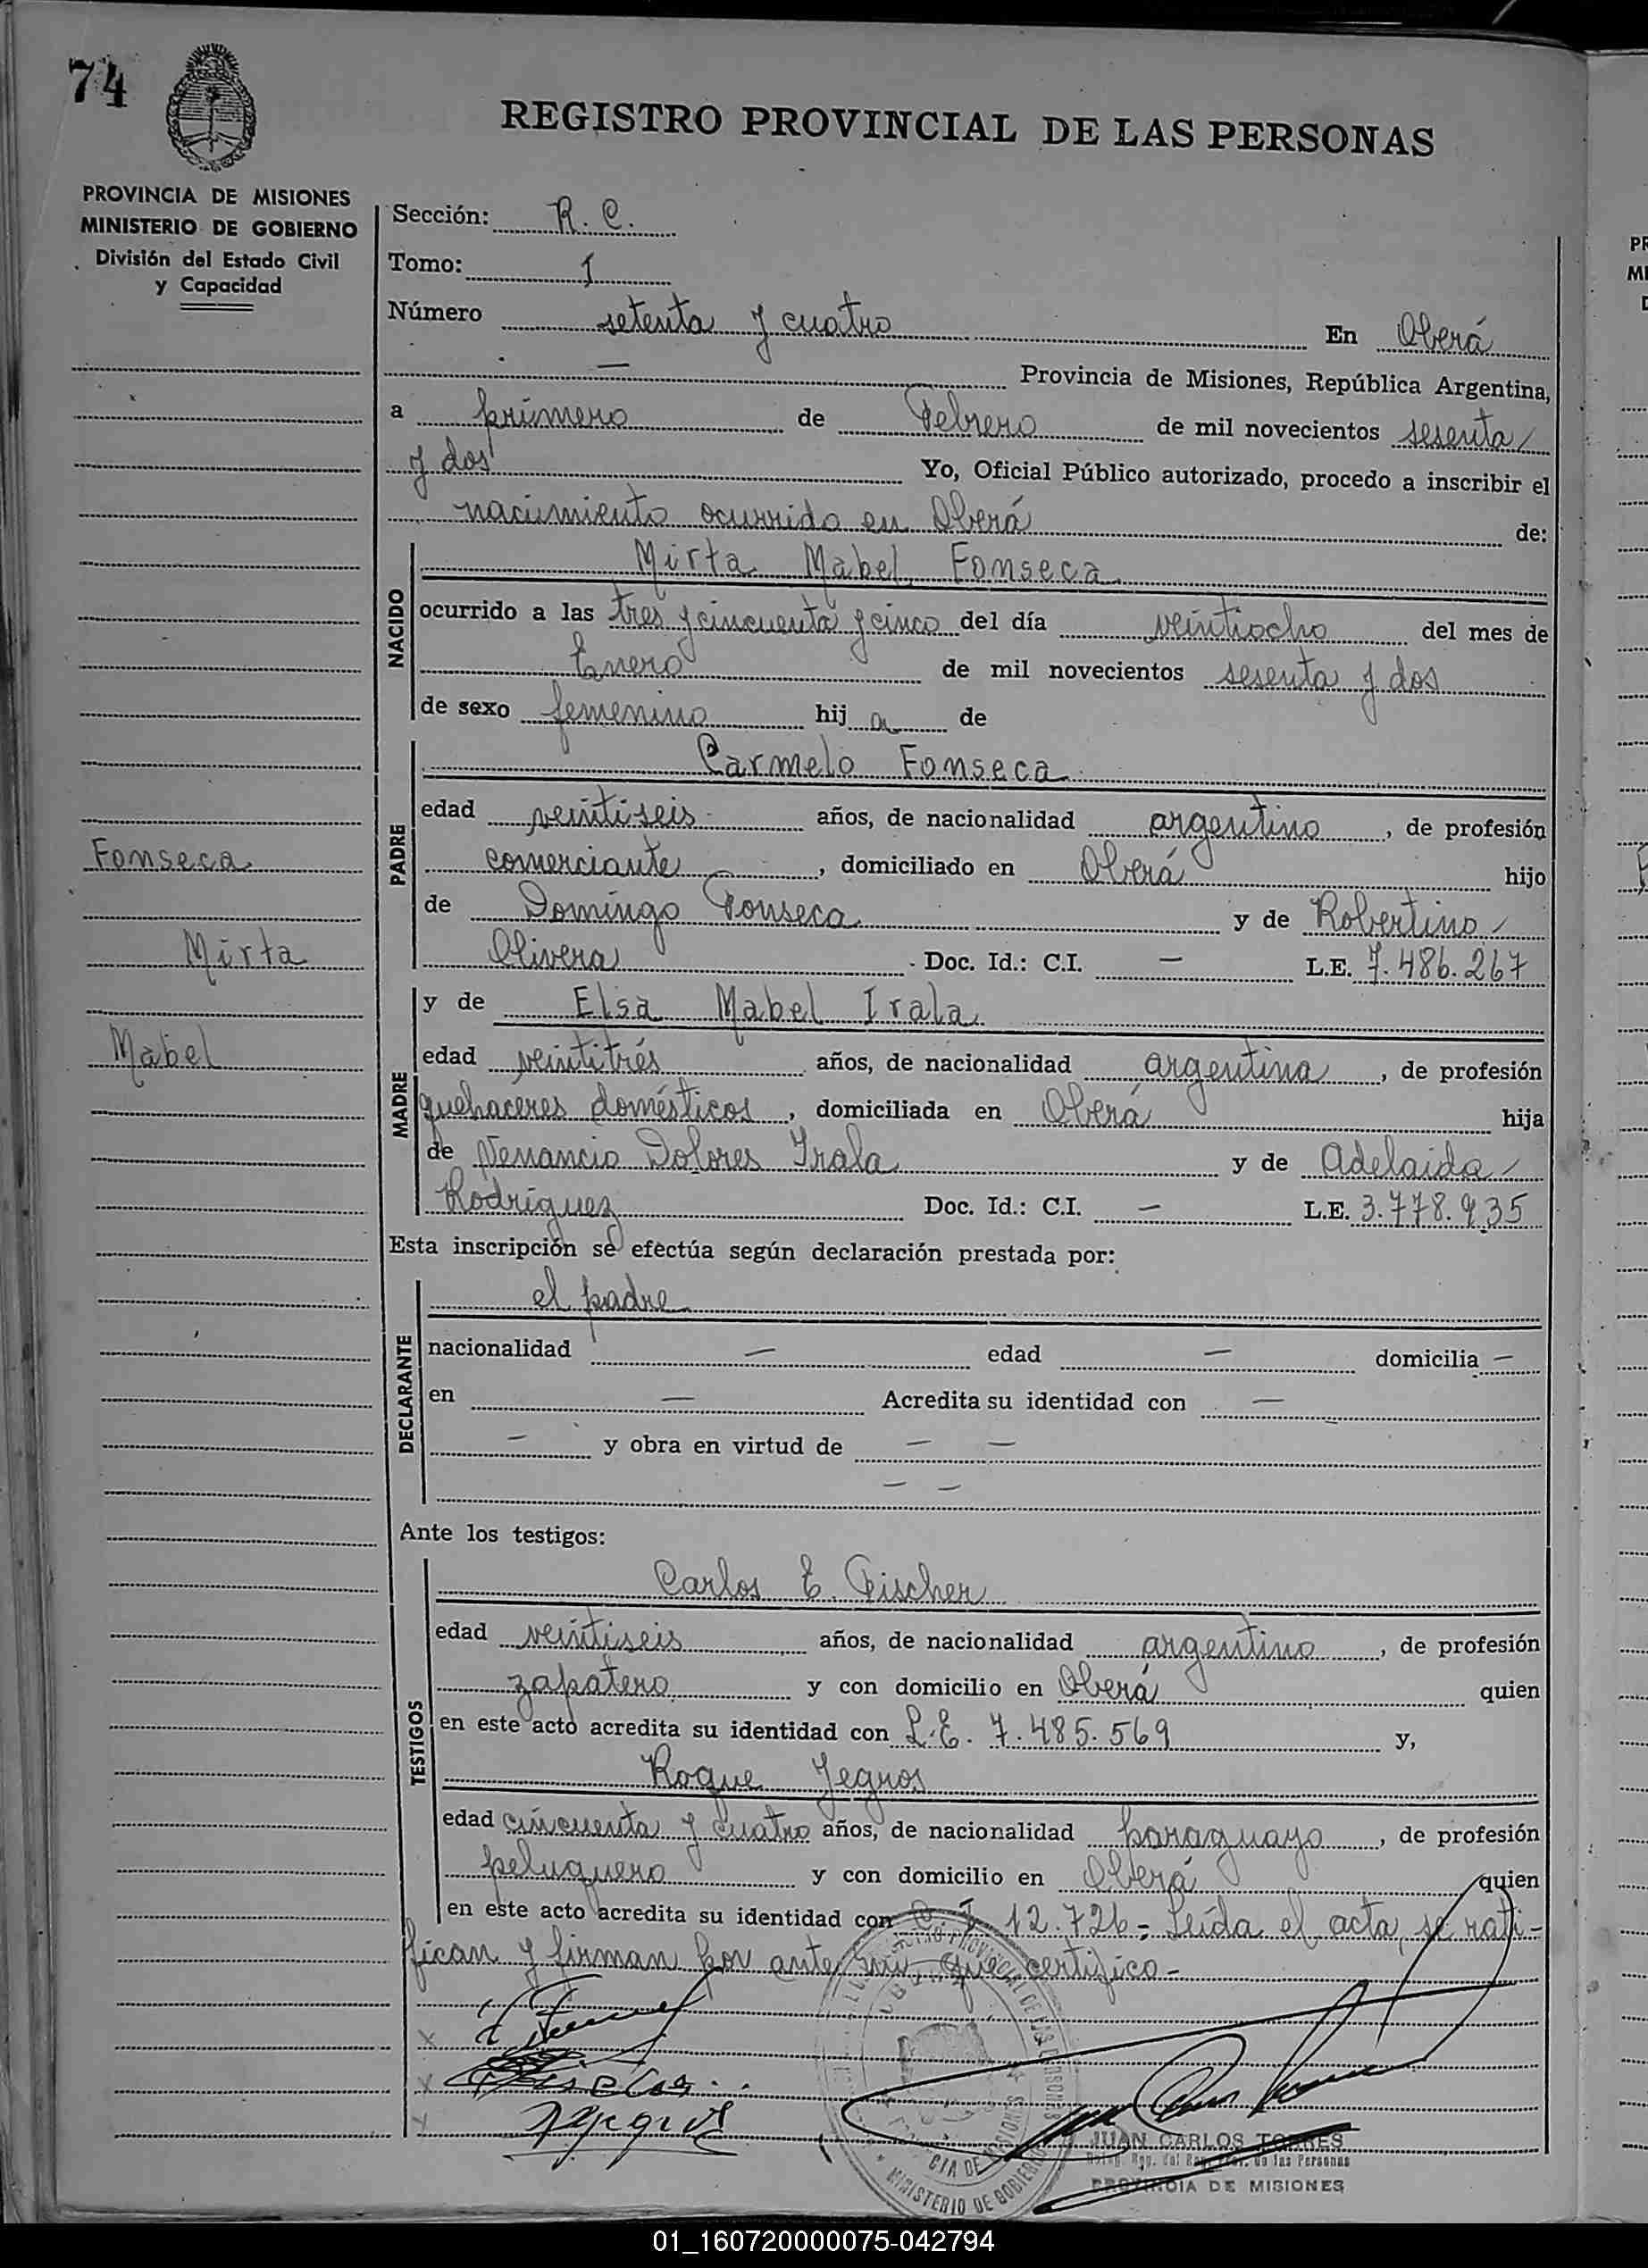 74
REGISTRO PROVINCIAL DE LAS PERSONAS
PROVINCIA DE MISIONES
MINISTERIO DE GOBIERNO
División del Estado Civil
y Capacidad
Sección: R. C.
Tomo: 1
Número setenta y cuatro En Oberá
— Provincia de Misiones, República Argentina,
a primero de Febrero de mil novecientos sesenta
y dos Yo, Oficial Público autorizado, procedo a inscribir el
nacimiento ocurrido en Oberá de:
NACIDO
Mirta Mabel Fonseca
ocurrido a las tres y cincuenta y cinco del día veintiocho del mes de
Enero de mil novecientos sesenta y dos
de sexo femenino hij a de
PADRE
Carmelo Fonseca
edad veintiseis años, de nacionalidad argentino, de profesión
comerciante, domiciliado en Oberá hijo
de Domingo Fonseca y de Robertina
Olivera Doc. Id.: C.I. — L.E. 7.486.267
Fonseca
Mirta
Mabel
MADRE
y de Elsa Mabel Irala
edad veintitrés años, de nacionalidad argentina, de profesión
quehaceres domésticos, domiciliada en Oberá hija
de Venancio Dolores Irala y de Adelaida
Rodríguez Doc. Id.: C.I. — L.E. 3.778.935
Esta inscripción se efectúa según declaración prestada por:
DECLARANTE
el padre
nacionalidad — edad — domicilia —
en — Acredita su identidad con —
— y obra en virtud de — —
— —
Ante los testigos:
TESTIGOS
Carlos E. Fischer
edad veintiseis años, de nacionalidad argentino, de profesión
zapatero y con domicilio en Oberá quien
en este acto acredita su identidad con L.E. 7.485.569 y,
Roque Yegros
edad cincuenta y cuatro años, de nacionalidad paraguayo, de profesión
peluquero y con domicilio en Oberá quien
en este acto acredita su identidad con C. I 12.726- Leída el acta, se rati-
fican y firman por ante mí que certifico-
JUAN CARLOS TORRES
de las Personas
PROVINCIA DE MISIONES
MINISTERIO DE GOBIERNO
01_160720000075-042794